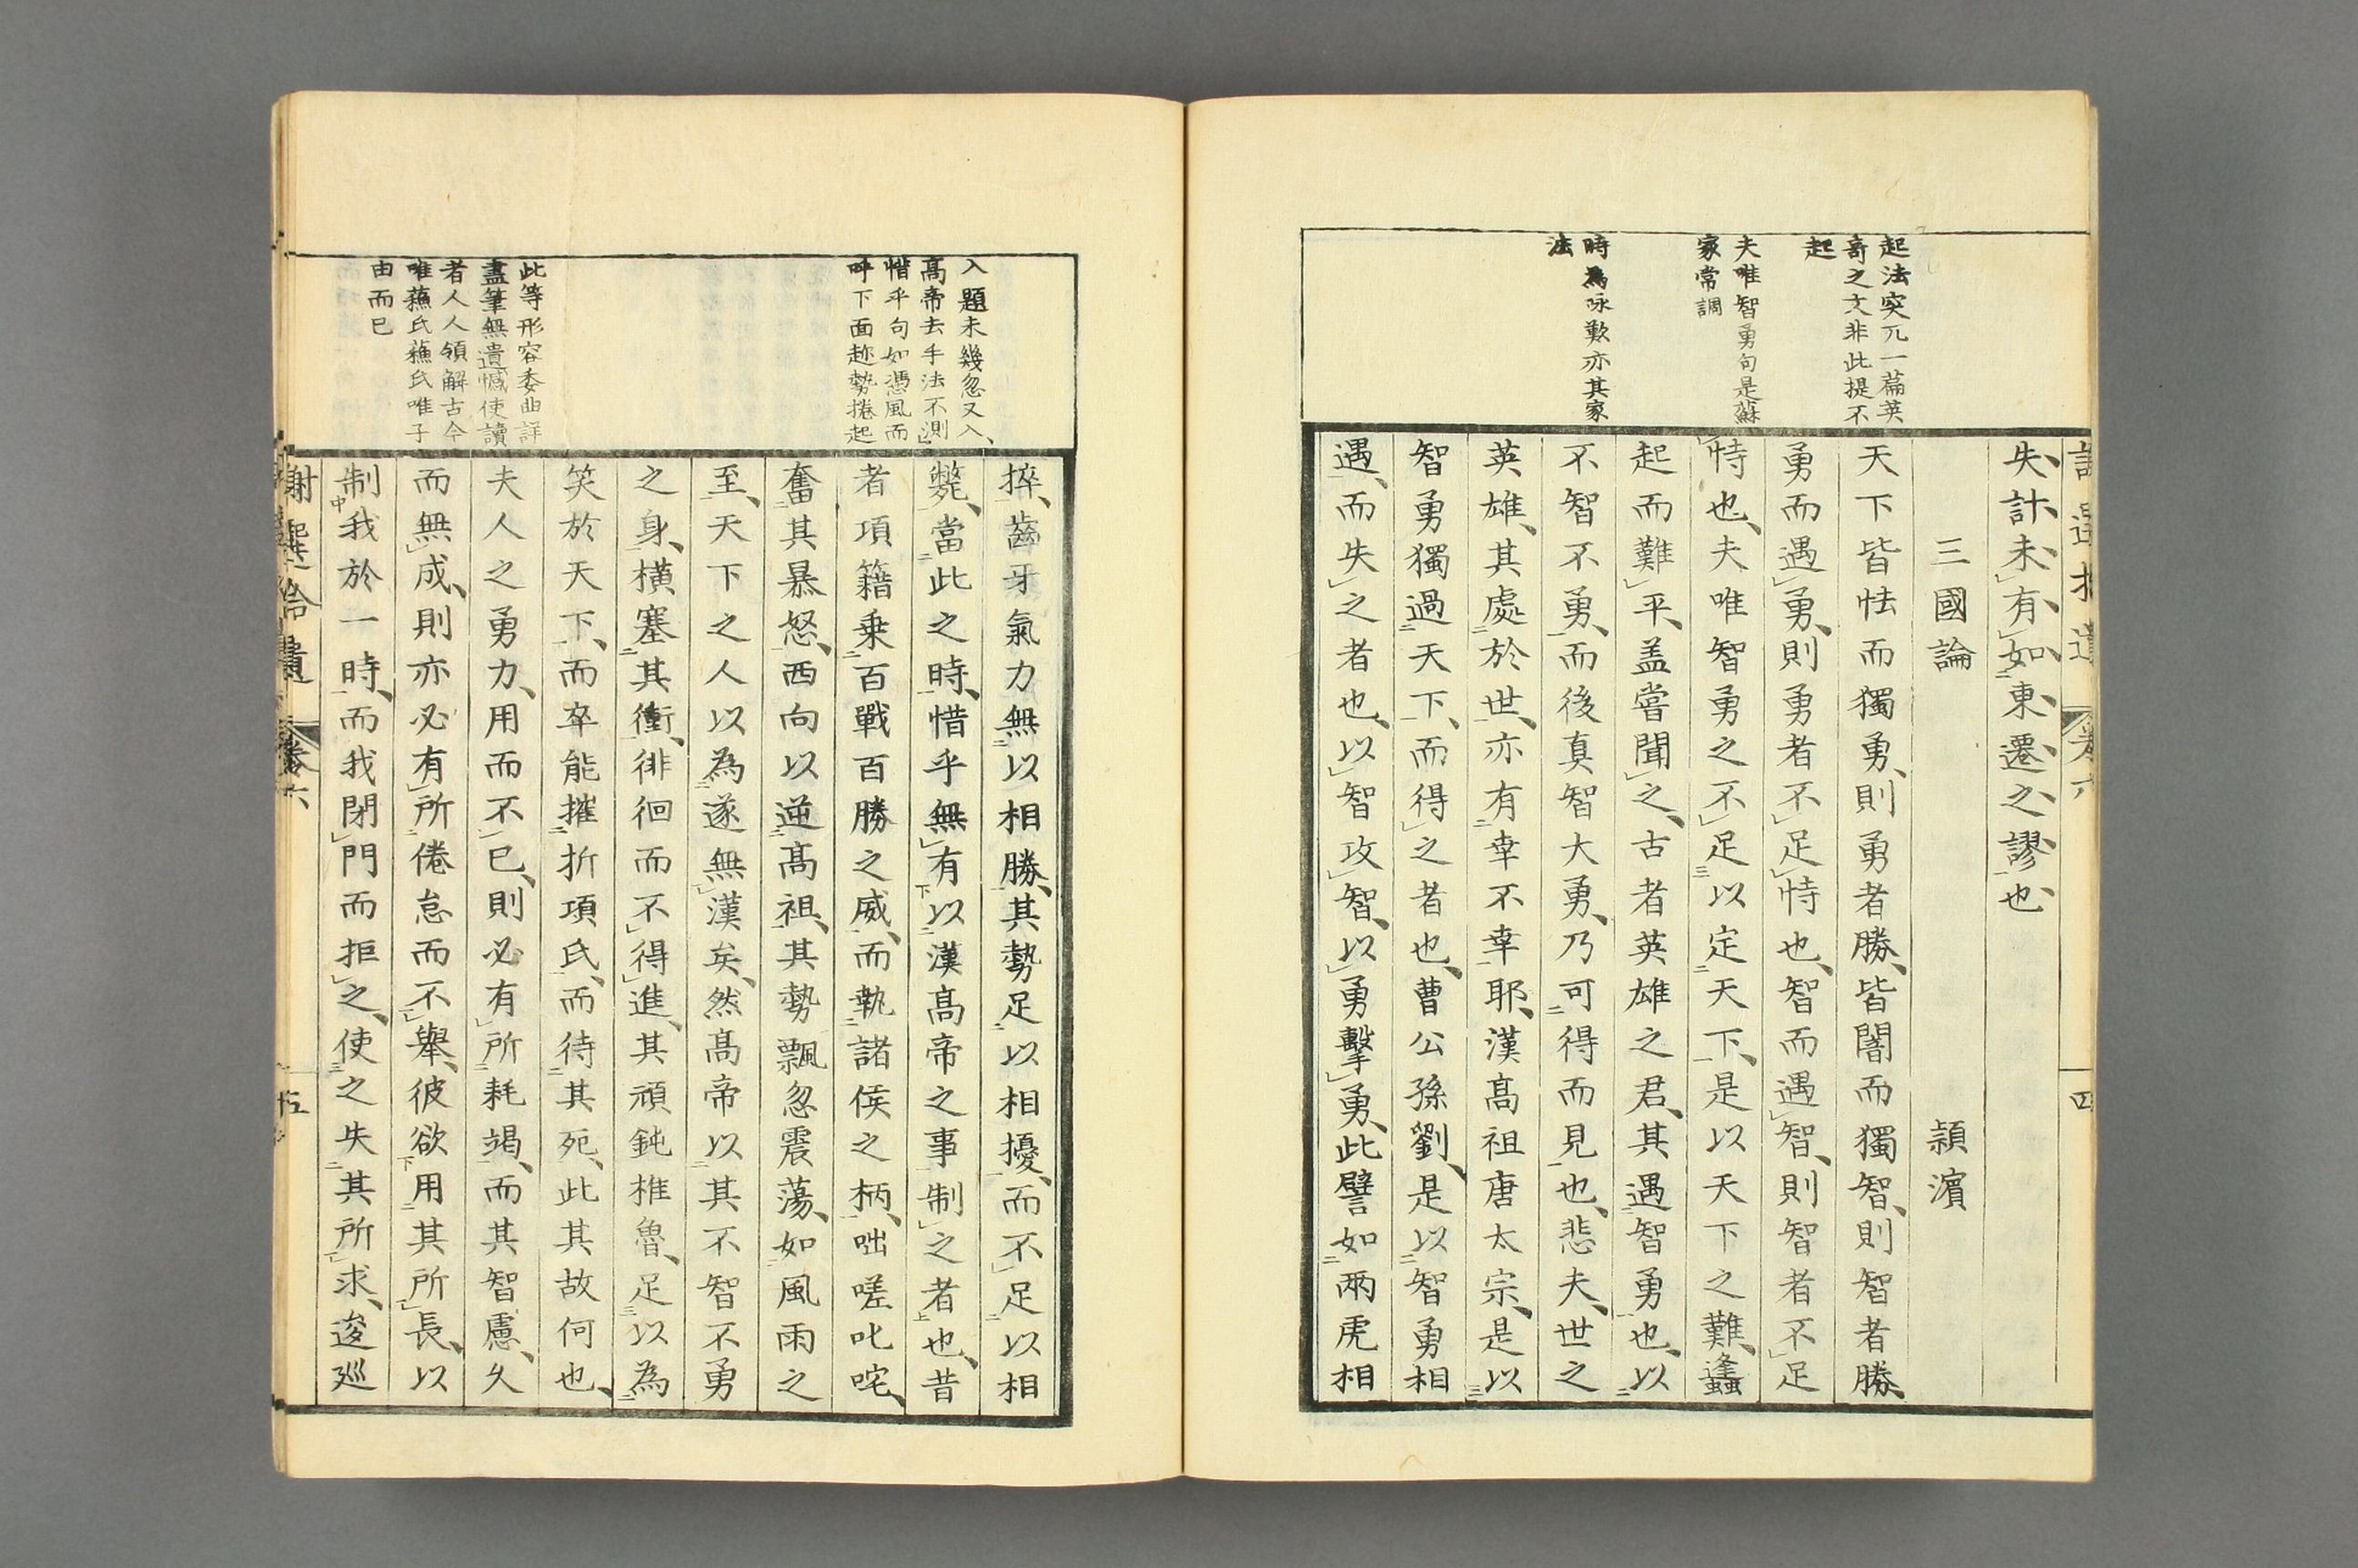 起法突兀一篇英
奇之文非此提不
起
夫唯智勇句是蘇
家常調
時為咏歎亦其家
法
失計未有如東遷之謬也
三國論 潁濱
天下皆怯而獨勇則勇者勝皆闇而獨智則智者勝
勇而遇勇則勇者不足恃也智而遇智則智者不足
恃也夫唯智勇之不足以定天下是以天下之難蠭
起而難平盖嘗聞之古者英雄之君其遇智勇也以
不智不勇而後真智大勇乃可得而見也悲夫世之
英雄其處於世亦有幸不幸耶漢高祖唐太宗是以
智勇獨過天下而得之者也曹公孫劉是以智勇相
遇而失之者也以智攻智以勇擊勇此譬如兩虎相
入題未幾忽又入
高帝去手法不測
惜乎句如憑風而
呼下面趂勢捲起
此等形容委曲詳
盡筆無遺憾使讀
者人人領解古今
唯蘇氏蘇氏唯子
由而已
捽齒牙氣力無以相勝其勢足以相擾而不足以相
斃當此之時惜乎無有以漢高帝之事制之者也昔
者項籍乗百戰百勝之威而執諸侯之柄咄嗟叱咤
奮其暴怒西向以逆高祖其勢飄忽震蕩如風雨之
至天下之人以為遂無漢矣然高帝以其不智不勇
之身橫塞其衝徘徊而不得進其頑鈍椎魯足以為
笑於天下而卒能摧折項氏而待其死此其故何也
夫人之勇力用而不已則必有所耗竭而其智慮久
而無成則亦必有所倦怠而不舉彼欲用其所長以
制我於一時而我閉門而拒之使之失其所求逡巡
謝選拾遺 卷六